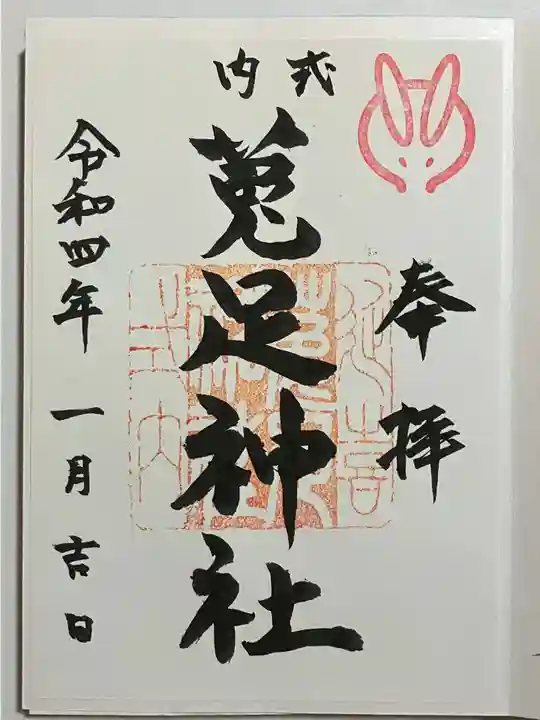 奉拝
式内
菟足神社
令和四年一月吉日